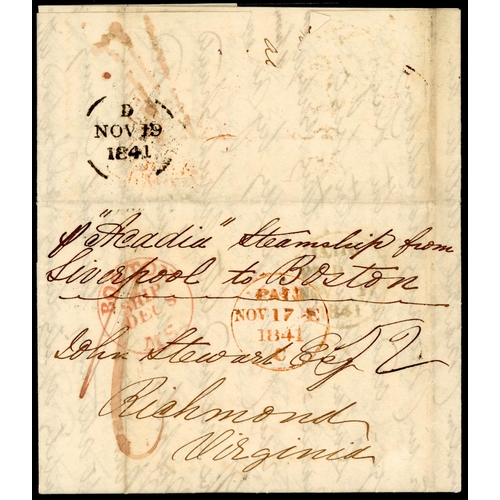 D
NOV 19
1841
p "Acadia" Steamship from
Liverpool to Boston
BOSTON
SHIP
DEC 5
MS
PAID
NOV 17
1841
John Stewart Esq
Richmond
Virginia